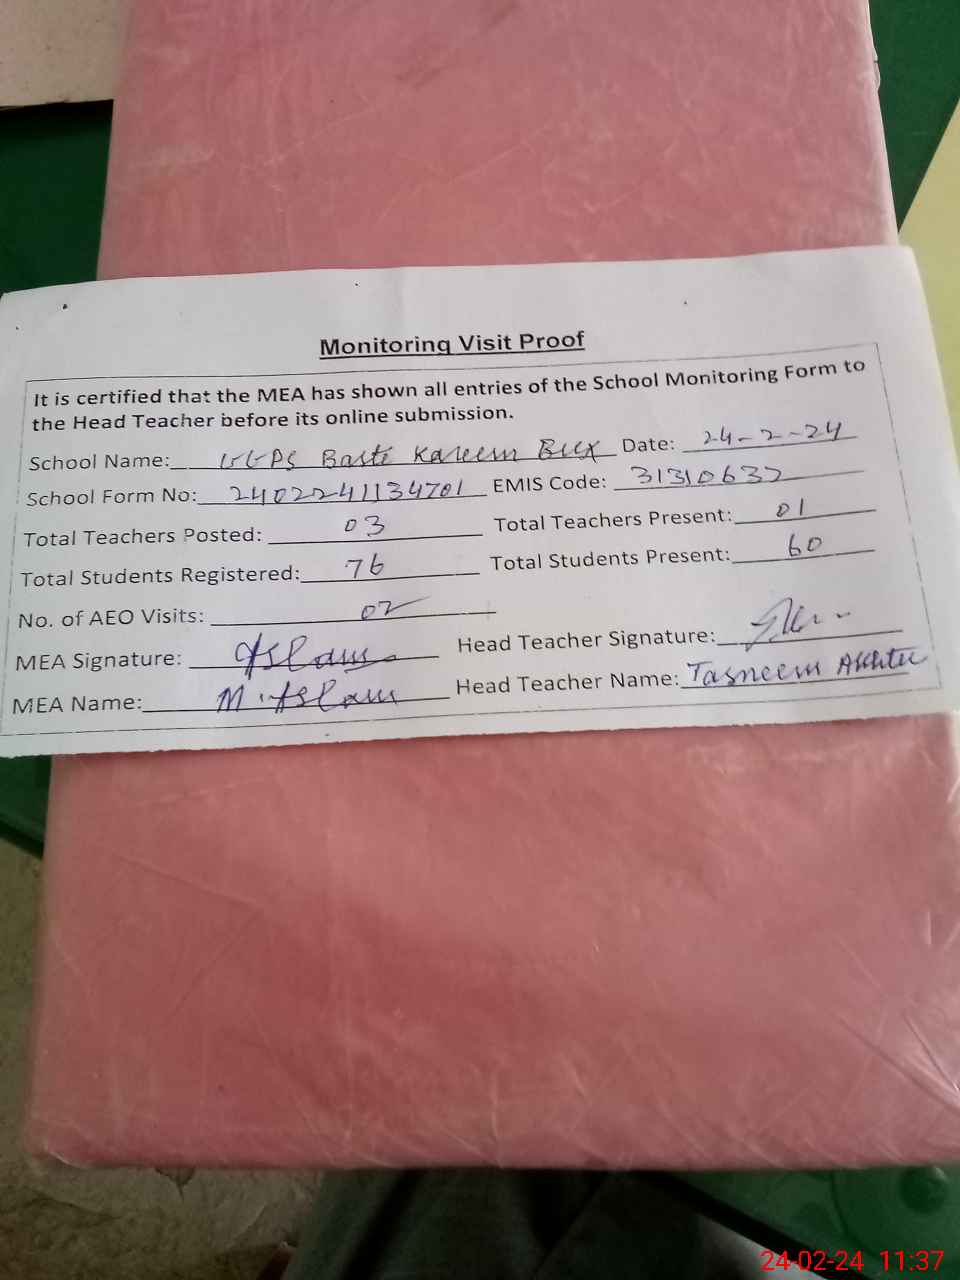 Monitoring Visit Proof
It is certified that the MEA has shown all entries of the School Monitoring Form to
the Head Teacher before its online submission.
School Name: GGPS Basti Kareem Bux Date: 24-2-24
School Form No: 2402241134701 EMIS Code: 31310632
Total Teachers Posted: 03 Total Teachers Present: 01
Total Students Registered: 76 Total Students Present: 60
No. of AEO Visits: 02
MEA Signature: Aslam Head Teacher Signature:
MEA Name: M. Aslam Head Teacher Name: Tasneem Akhtar
24-02-24 11:37